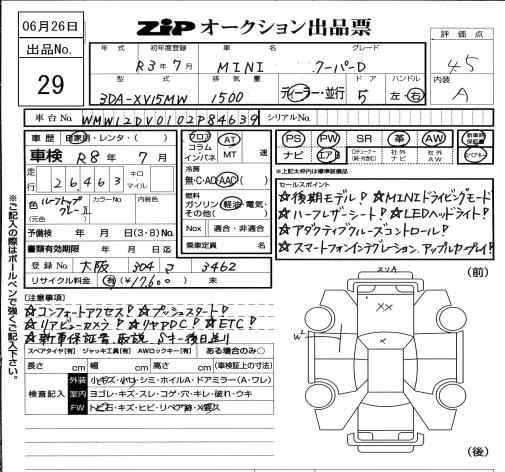 06月26日
ZIP オークション出品票
出品No.
29
評価点
4.5
内装
A
年式 初年度登録 車名 グレード
R3年7月 MINI クーパーD
型式 排気量 ディーラー・並行 ドア ハンドル
3DA-XV15MW 1500 5 左・右
車台No. WMW12DV0102P84639 シリアルNo.
車歴 自家用・レンタ・( )
車検 R8年7月
走行 26,463 キロ マイル
色 ルーフトップグレーⅡ カラーNo. 内装色
(元色)
予備検 年 月 日(3・8)No.
書類有効期限 年 月 日迄
登録No. 大阪 304 さ 3462
リサイクル料金 有(¥17,600) 未
フロア
コラム
インパネ
AT
MT 速
冷房
無・C・AC・AAC( )
燃料
ガソリン・軽油・電気・その他( )
Nox 適合・非適合
乗車定員 名
PS PW SR 革 AW 新車時保証書
ナビ エアB 社外ナビ 社外AW スペアキー
※上記太枠内は標準装備品
セールスポイント
☆後期モデル! ☆MINIドライビングモード
☆ハーフレザーシート! ☆LEDヘッドライト!
☆アダプティブクルーズコントロール!
☆スマートフォンインテグレーション.アップルカープレイ!
(注意事項)
☆コンフォートアクセス! ☆プッシュスタート!
☆リアビューカメラ! ☆リヤPDC! ☆ETC!
☆新車保証書、取説、Sキー後日送り
スペアタイヤ[有] ジャッキ工具[有] AWロックキー[有] ある場合のみ○
長さ cm 幅 cm 高さ cm (車検証上の寸法)
検査記入
外装 小キズ・小凹・シミ・ホイルA・ドアミラー(A・ワレ)
室内 ヨゴレ・キズ・スレ・コゲ・穴・キレ・破れ・ウキ
FW トビ石・キズ・ヒビ・リペア跡・X要ス
※ご記入の際はボールペンで強くご記入下さい。
(前)
XX
X
W2
(後)